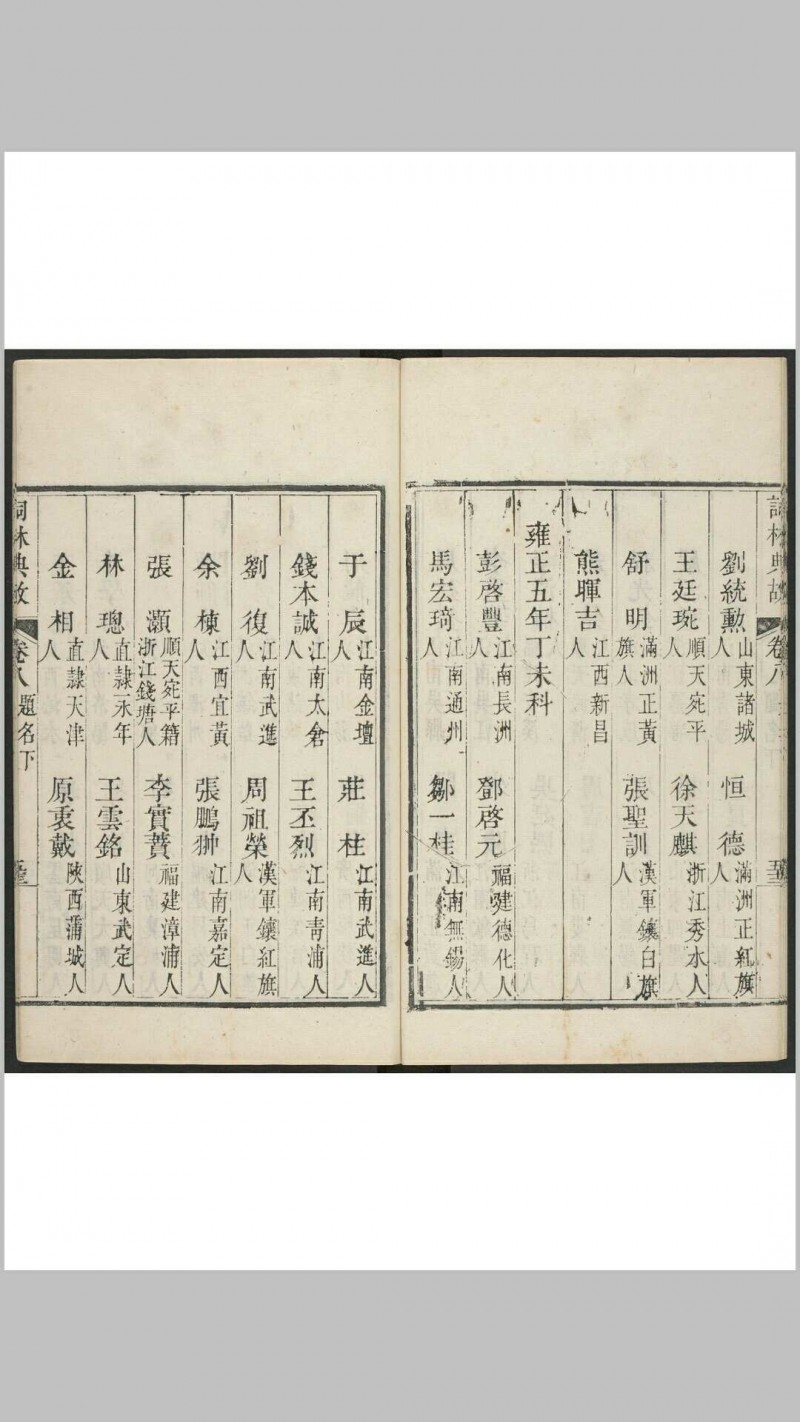 詞林典故 卷八
劉統勲 山東諸城人 恒德 滿洲正紅旗人
王廷琬 順天宛平人 徐天麒 浙江秀水人
舒明 滿洲正黃旗人 張聖訓 漢軍鑲白旗人
熊暉吉 江西新昌人
雍正五年丁未科
彭啓豐 江南長洲人 鄧啓元 福建德化人
馬宏琦 江南通州人 鄒一桂 江南無錫人
于辰 江南金壇人 莊柱 江南武進人
錢本誠 江南太倉人 王丕烈 江南青浦人
劉復 江南武進人 周祖榮 漢軍鑲紅旗人
余棟 江西宜黃人 張鵬翀 江南嘉定人
張灝 順天宛平籍浙江錢塘人 李實蕡 福建漳浦人
林璁 直隷永年人 王雲銘 山東武定人
金相 直隷天津人 原衷戴 陝西蒲城人
詞林典故 卷八 題名下